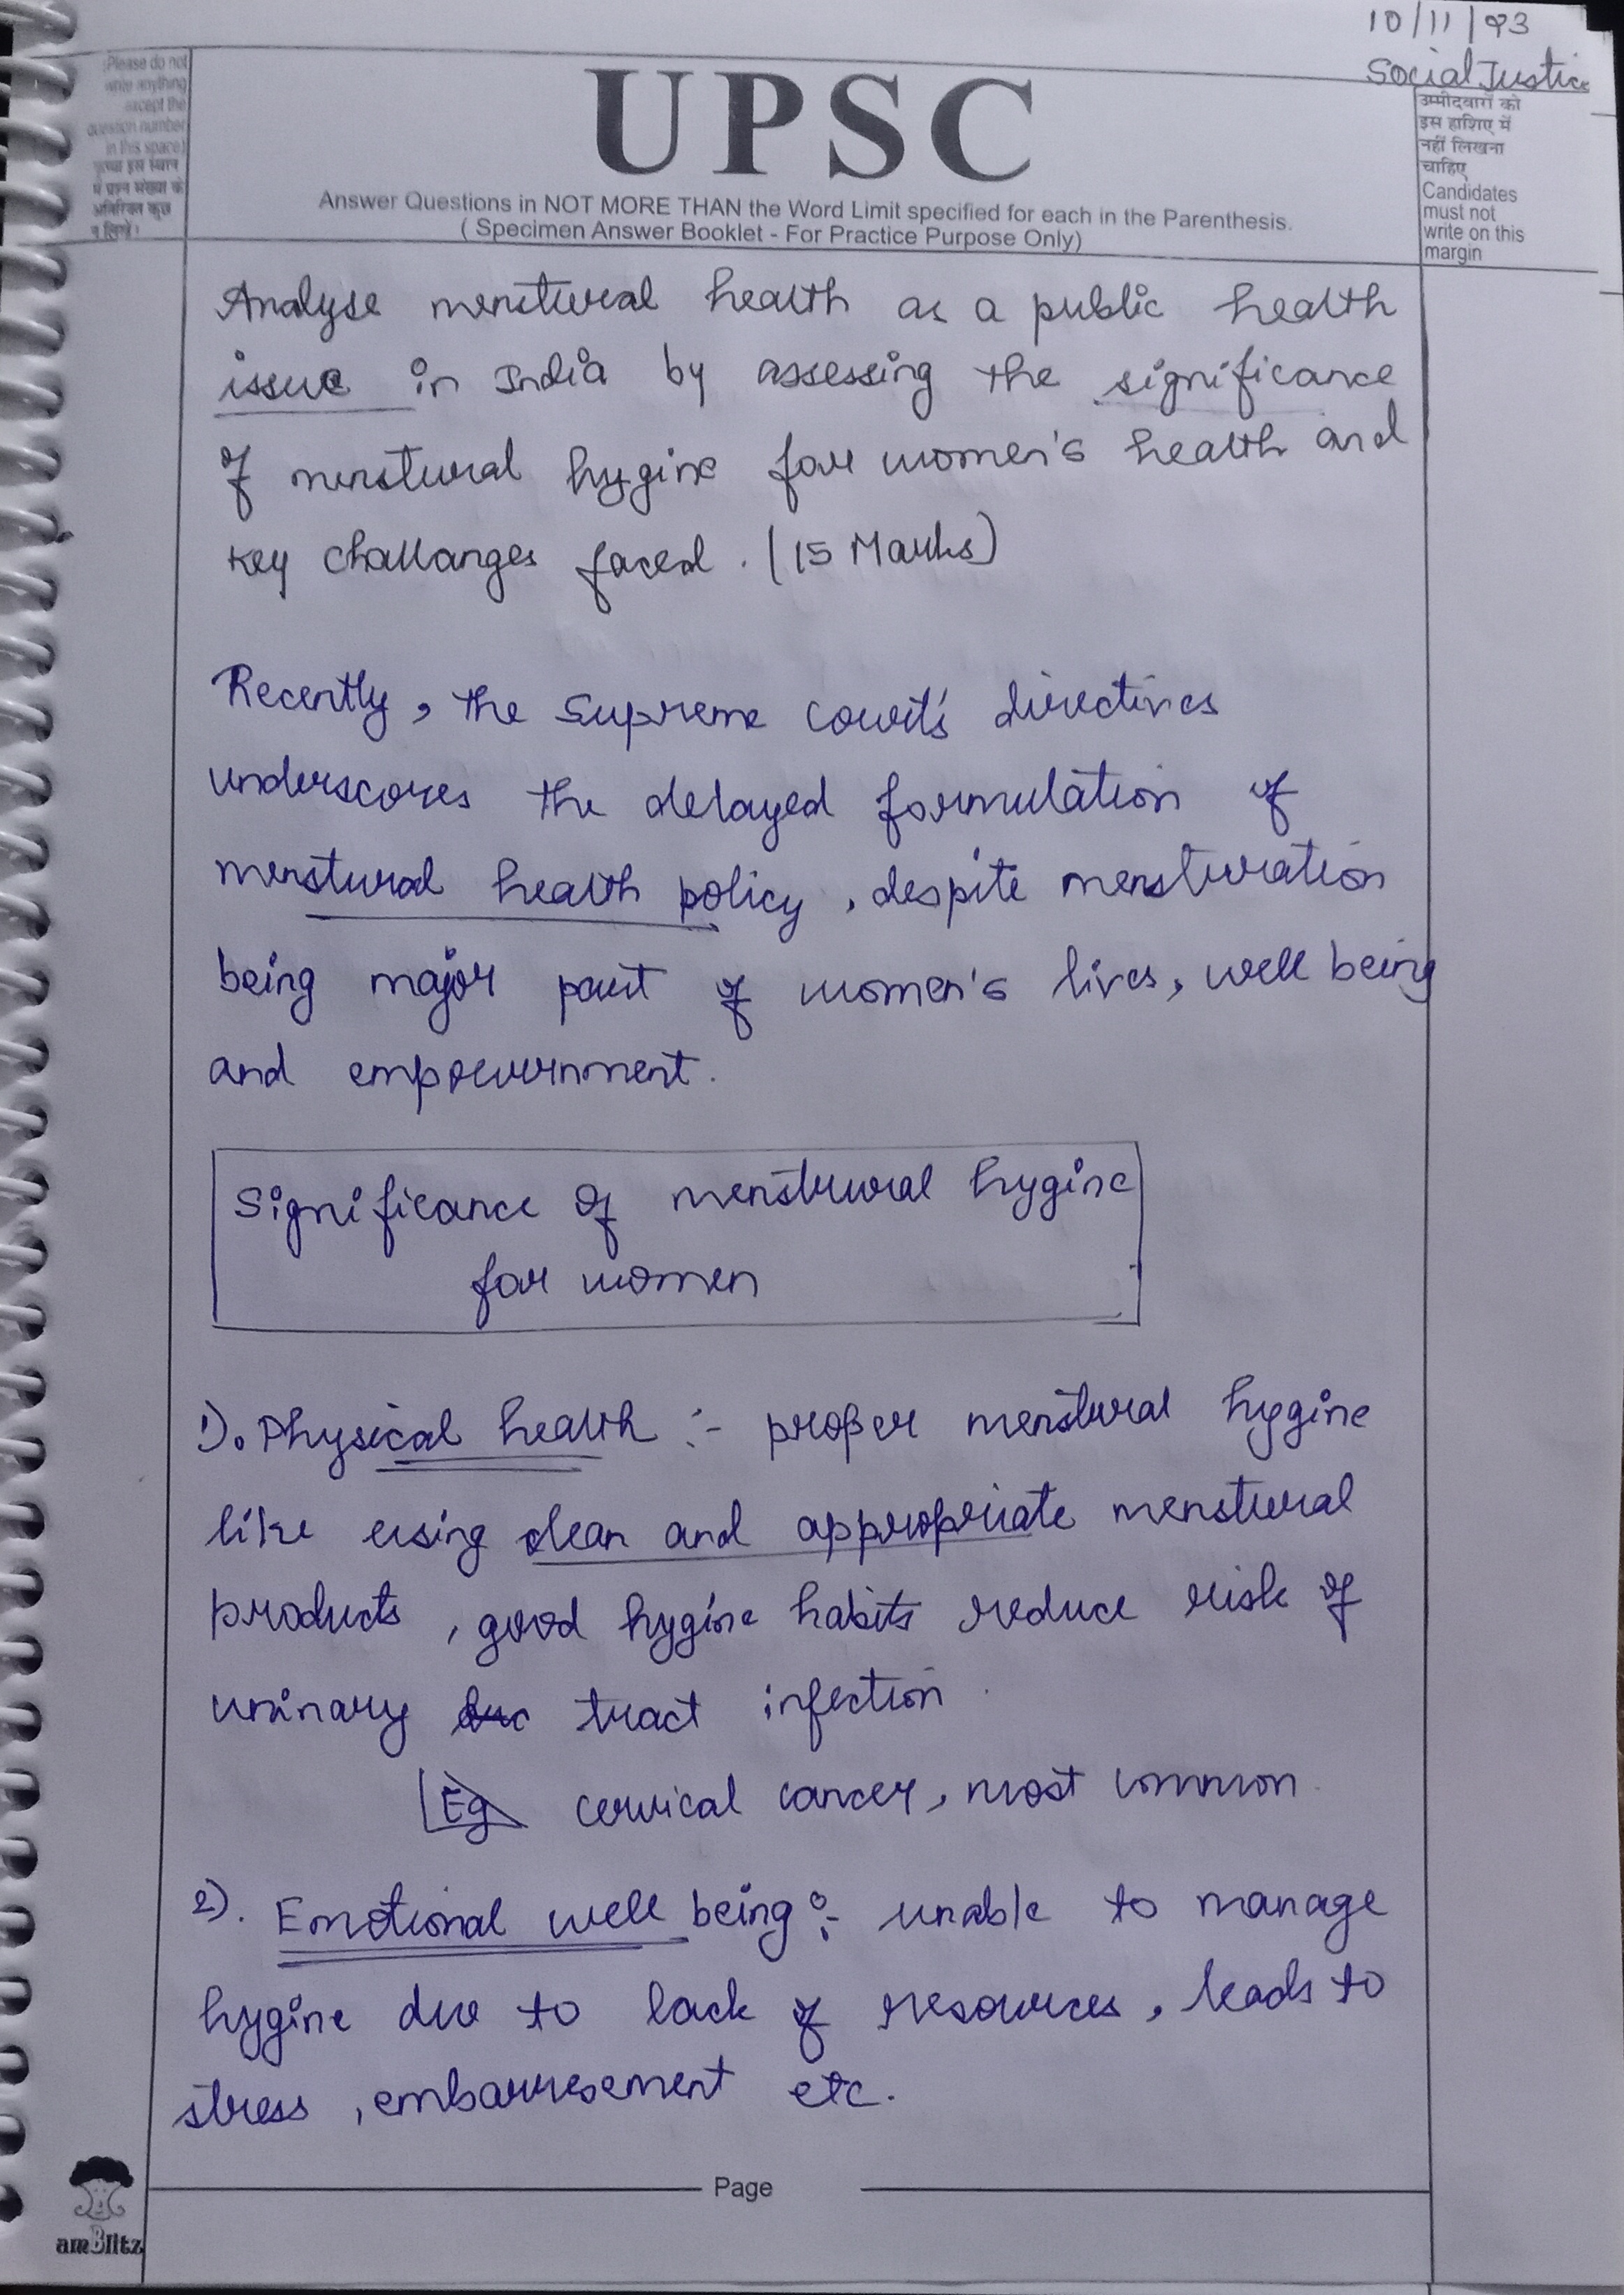 10/11/23
Social Justice
(Please do not
write anything
except the
question number
in this space)
कृपया इस स्थान
में प्रश्न संख्या के
अतिरिक्त कुछ
न लिखें।
UPSC
Answer Questions in NOT MORE THAN the Word Limit specified for each in the Parenthesis.
( Specimen Answer Booklet - For Practice Purpose Only)
उम्मीदवारों को
इस हाशिए में
नहीं लिखना
चाहिए
Candidates
must not
write on this
margin
Analyse menstural health as a public health
issue in India by assessing the significance
of menstural hygine for women's health and
key challanges faced. (15 Marks)
Recently, the Supreme court's directives
underscores the delayed formulation of
menstural health policy, despite mensturation
being major part of women's lives, well being
and empowernment.
Significance of menstural hygine
for women
1). Physical health :- proper menstural hygine
like using clean and appropriate menstural
products, good hygine habits reduce risk of
urinary tract infection.
Eg cervical cancer, most common.
2). Emotional well being :- unable to manage
hygine due to lack of resources, leads to
stress, embarresement etc.
Page
amBlitz